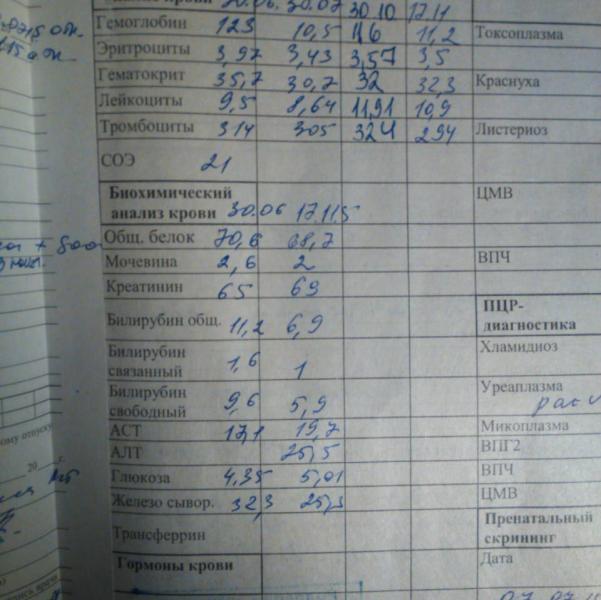 анализ крови 20.06. 30.07 30.10 17.11
Гемоглобин 123 10,5 116 11,2 Токсоплазма
Эритроциты 3,97 3,43 3,57 3,5
Гематокрит 35,7 30,7 32 32,3 Краснуха
Лейкоциты 9,5 8,64 11,91 10,9
Тромбоциты 314 305 324 294 Листериоз
СОЭ 21
Биохимический ЦМВ
анализ крови 30.06 17.11,5
Общ. белок 70,6 68,7
Мочевина 2,6 2 ВПЧ
Креатинин 65 69
ПЦР-
Билирубин общ. 11,2 6,9 диагностика
Билирубин Хламидиоз
связанный 1,6 1
Билирубин Уреаплазма
свободный 9,6 5,9
АСТ 17,1 19,7 Микоплазма
АЛТ 25,5 ВПГ2
Глюкоза 4,35 5,01 ВПЧ
Железо сывор. 32,3 25,3 ЦМВ
Трансферрин Пренатальный
скрининг
Гормоны крови Дата